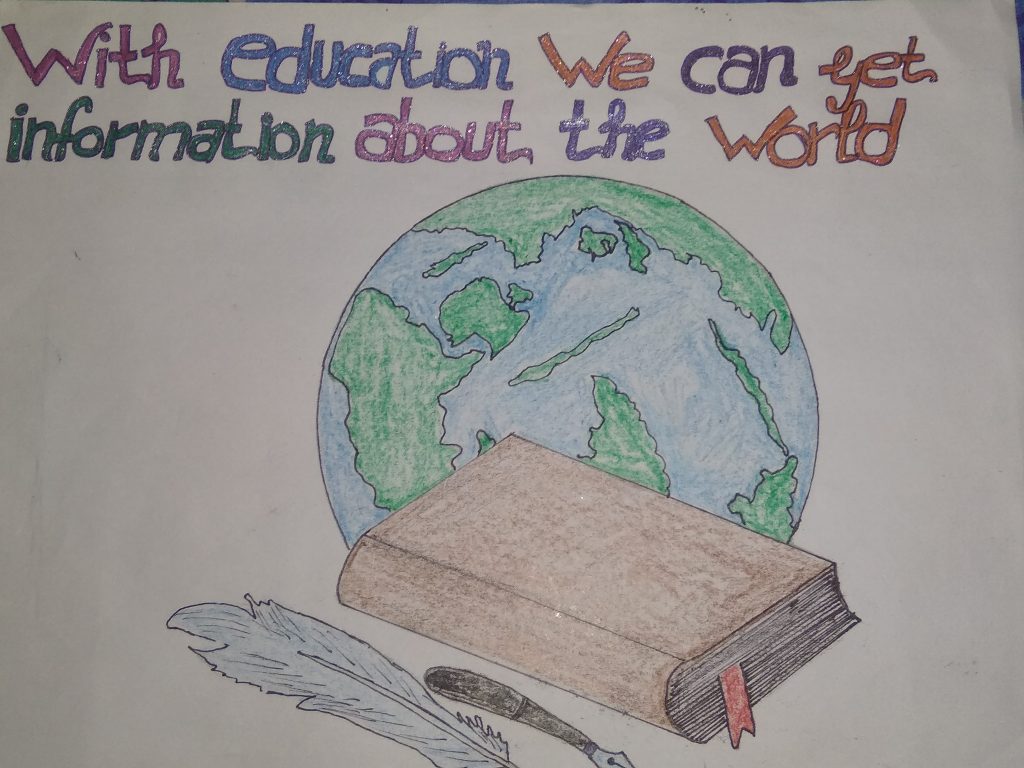 With education We can get
information about the World